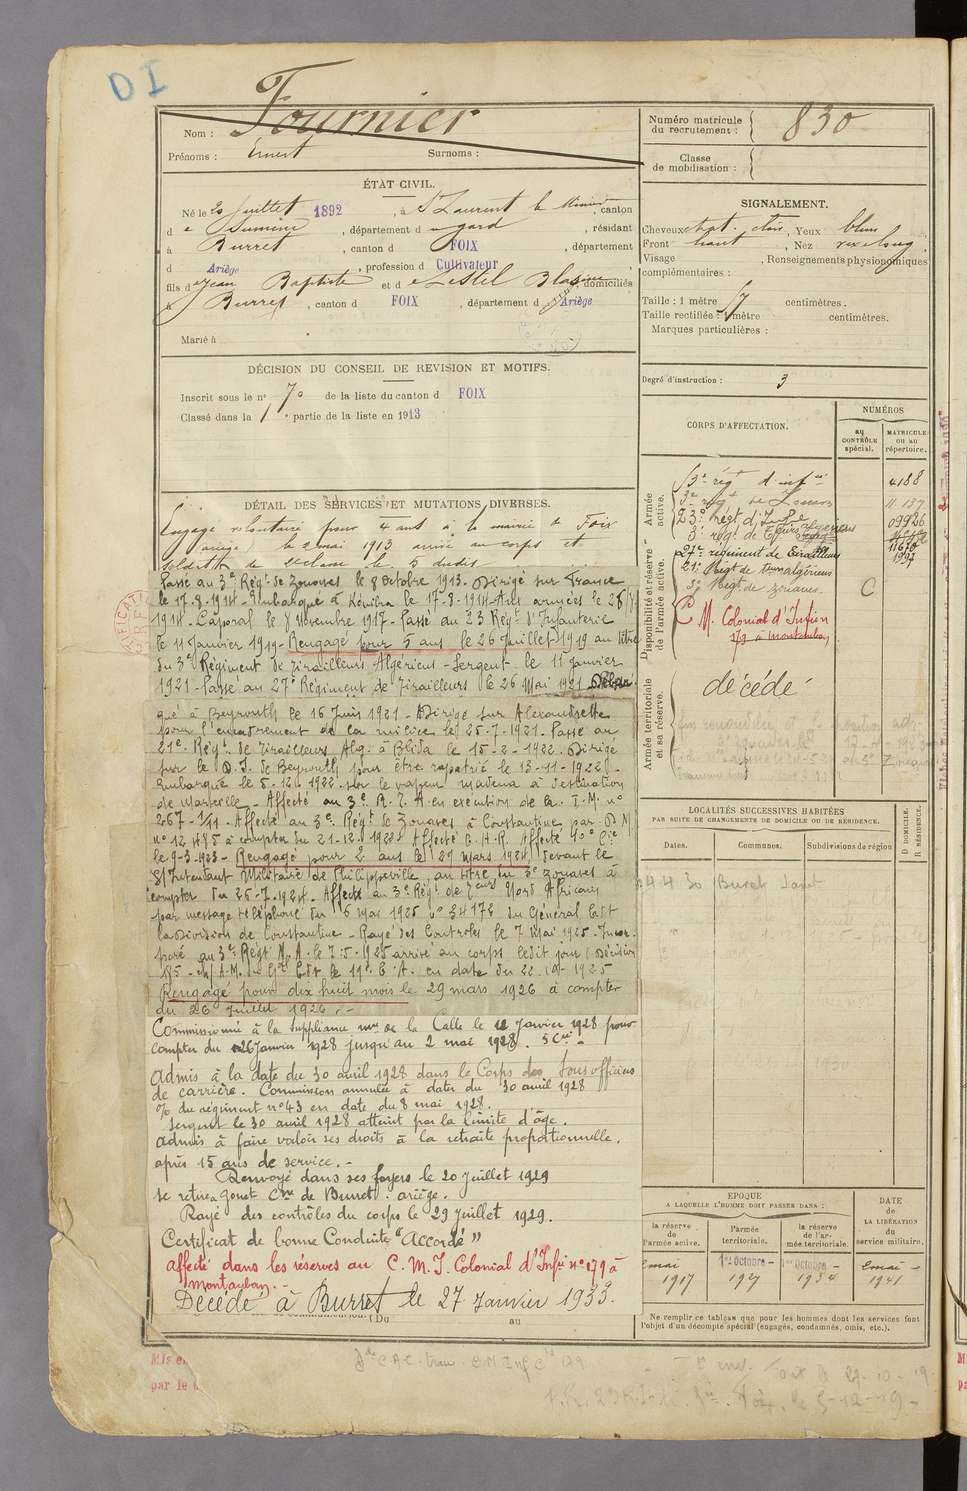 DI
Nom : Fournier
Prénoms : Ernest Surnoms :
ÉTAT CIVIL.
Né le 20 Juillet 1892, à St Laurent le Minier, canton
d e Sumène, département d u gard, résidant
à Burret, canton d FOIX, département
d Ariège, profession d Cultivateur
fils d e Jean Baptiste et d e Lestel, domiciliés
à Burret, canton d FOIX, département d Ariège
Marié à
DÉCISION DU CONSEIL DE REVISION ET MOTIFS.
Inscrit sous le n° 70 de la liste du canton d FOIX
Classé dans la 1e partie de la liste en 1913
DÉTAIL DES SERVICES ET MUTATIONS DIVERSES.
Engagé volontaire pour 4 ans à la mairie de Foix
(ariège) le 2 mai 1913 arrivé au corps et
soldat de 2e classe le 5 dudit
Passé au 3e Régt de Zouaves le 8 octobre 1913. Dirigé sur France
le 17-8-1914. Embarqué à Kénitra le 17-8-1914. Aux armées le 28/8/
1914 - Caporal le 8 Novembre 1917 - Passé au 23 Régt d'Infanterie
le 11 Janvier 1919 - Rengagé pour 5 ans le 26 Juillet 1919 au titre
du 3e Régiment de Tirailleurs Algériens - Sergent - le 11 janvier
1921 - Passé au 27e Régiment de Tirailleurs le 26 Mai 1921 Débar
qué à Beyrouth le 16 Juin 1921 - Dirigé sur Alexandrette
pour l'encadrement de la milice le 25-7-1921. Passé au
21e Régt de Tirailleurs Alg. à Blida le 15-2-1922. Dirigé
sur le D.I. de Beyrouth pour être rapatrié le 13-11-1922.
Embarqué le 5-12-1922 sur le vapeur à destination
de Marseille - Affecté au 3e R.T.A. en exécution de la T.M. n°
267-1/11 - Affecté au 3e Régt de Zouaves à Constantine par D.M
n° 12 485 à compter du 21-12-1922 Affecté C.H.R. Affecté 10e Cie
le 9-3-1923 - Rengagé pour 2 ans le 29 Mars 1924 devant le
S/Intendant Militaire de Philippeville, au titre du 3e Zouaves à
compter du 26-7-1924. Affecté au 3e Régt de Nord Africain
par message téléphoné du 6 Mai 1925 n° 3417E du Général Cdt
la Division de Constantine - Rayé des Controles le 7 Mai 1925. Incor-
poré au 3e Régt N.A. le 7-5-1925 arrivé au corps ledit jour (Décision
185 - du Gal Cdt le 19e C.A. en date du
Rengagé pour dix huit mois le 29 mars 1926 à compter
du 26 Juillet 1926 .-
Commissionné à la de la Calle le 12 Janvier 1928 pour
compter du 26 Janvier 1928 jusqu'au 2 mai 1928.
Admis à la date du 30 avril 1928 dans le Corps des Sous officiers
de carrière. Commission annulée à dater du 30 avril 1928
% du régiment n° 43 en date du 8 mai 1928.
Sergent le 30 avril 1928 atteint par la limite d'âge.
Admis à faire valoir ses droits à la retraite proportionnelle.
après 15 ans de service. -
Renvoyé dans ses foyers le 20 Juillet 1929
se retire à Cne de Burret. ariège.
Rayé des contrôles du corps le 29 Juillet 1929.
Certificat de bonne Conduite "Accordé"
affecté dans les réserves au C.M.I. Colonial d'Infie n° 179 à
Montauban. -
Décédé à Burret le 27 Janvier 1933.
(Du au
Numéro matricule
du recrutement : 830
Classe
de mobilisation :
SIGNALEMENT.
Cheveux chat. clair, Yeux bleus
Front haut, Nez
Visage , Renseignements physionomiques
complémentaires :
Taille : 1 mètre 57 centimètres.
Taille rectifiée : 1 mètre centimètres.
Marques particulières :
Degré d'instruction : 3
CORPS D'AFFECTATION.
NUMÉROS
au CONTRÔLE spécial.
MATRICULE ou au répertoire.
Armée active.
Disponibilité et réserve de l'armée active.
Armée territoriale et sa réserve.
régt d'infie 4188
3e régt de Zouaves 11 137
23e Régt d'Infie 09926
3e régt de Tirs algériens
27e régiment de Tirailleurs 1137
21e Régt de Tirs algériens
3e Régt de zouaves C
C M. Colonial d'Infan
179 à Montauban
décédé
LOCALITÉS SUCCESSIVES HABITÉES
PAR SUITE DE CHANGEMENTS DE DOMICILE OU DE RÉSIDENCE.
Dates. Communes. Subdivisions de région
D DOMICILE. R RÉSIDENCE.
4 4 30 Burret
EPOQUE
A LAQUELLE L'HOMME DOIT PASSER DANS :
la réserve de l'armée active.
l'armée territoriale.
la réserve de l'armée territoriale.
DATE de LA LIBÉRATION du service militaire.
2 mai 1917
1er Octobre - 1927
1er Octobre - 1934
2 mai - 1941
Ne remplir ce tableau que pour les hommes dont les services font
l'objet d'un décompte spécial (engagés, condamnés, omis, etc.).
Mis e
par le
Foix le 27-10-19
Foix, le 5-12-19